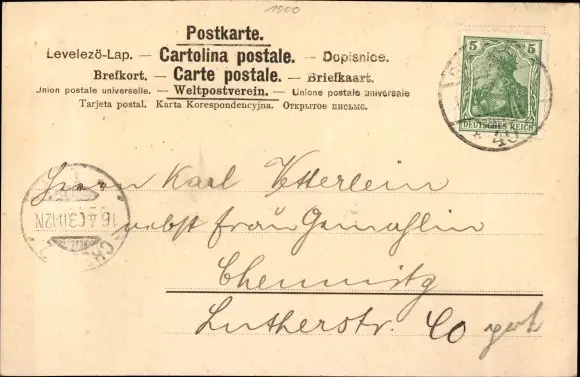 1900
Postkarte.
Levelezö-Lap. — Cartolina postale. — Dopisnice.
Brefkort. — Carte postale. — Briefkaart.
Union postale universelle. — Weltpostverein. — Unione postale universale
Tarjeta postal. Karta Korespondencyjna. Открытое письмо.
5 5
DEUTSCHES REICH
40
Herrn Karl Etterlein
nebst Frau Gemahlin
16.4 03 11-12N
Chemnitz
Lutherstr. 40